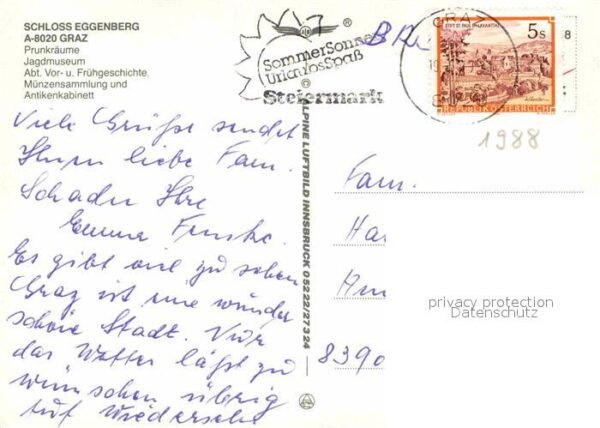 SCHLOSS EGGENBERG
A-8020 GRAZ
Prunkräume
Jagdmuseum
Abt. Vor- u. Frühgeschichte,
Münzensammlung und
Antikenkabinett
SommerSonne
UrlaubsSpaß
Steiermark
GRAZ
5s
STIFT ST. PAUL IM LAVANTTAL
REPUBLIK ÖSTERREICH
8
1988
Viele Grüße sendet
Ihnen liebe Fam.
Schader Ihre
Emma
Es gibt viel zu sehen
Graz ist eine wunder
schöne Stadt. Nur
das Wetter läßt zu
wünschen übrig
Auf Wiedersehn
ALPINE LUFTBILD INNSBRUCK 05222/27324
Fam.
Ha
8390
privacy protection
Datenschutz